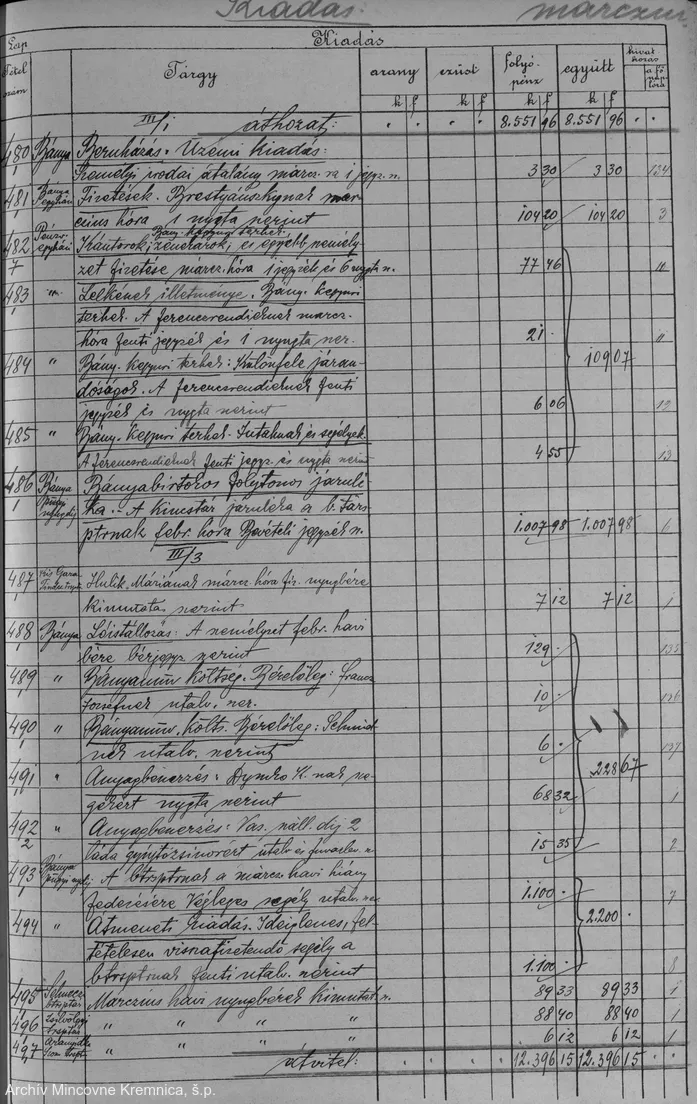 Kiadás. marczius
Lap Kiadás
Tétel szám Tárgy arany ezüst folyó-pénz együtt hivatkozás a fő naplóra
k f k f k f k f
III/1 áthozat: 8.551 96 8.551 96
480 Bánya Beruházás. Üzemi kiadás:
Személyi irodai átalány marcz. ra 1 jegyz. n. 3 30 3 30 134
481 Bánya Fizetések. Brestyánszkynak mar-
czius hóra 1 nyugta szerint 104 20 104 20 3
482 Bány. kegyuri terhek.
Kántorok, zenekarok, és egyébb személy-
7 zet fizetése marcz. hóra 1 jegyzék és 6 nyugta n. 77 46 11
483 " Lelkészek illetménye. Bány. kegyuri
terhek. A ferencrendieknek marcz.
hóra fenti jegyzék és 1 nyugta szer. 21 11
484 " Bány. kegyuri terhek: Különféle járan- 109 07
dóságok. A ferencrendieknek fenti
jegyzék és nyugta szerint 6 06 12
485 " Bány. kegyuri terhek. Jutalmak és segélyek.
A ferencrendieknek fenti jegyz. és nyugta szerint 4 55 13
486 Bánya Bányabirtokos folytonos járulé-
ka. A kincstár járuléka a b. társ-
ptrnak febr. hóra Bevételi jegyzék n. 1.007 98 1.007 98 6
III/3
487 Hulik Máriának márcz. hóra fiz. nyugbére
kimutatás szerint 7 12 7 12 1
488 Bánya Lóistállozás: A személyzet febr. havi
bére bérjegyz. szerint 129 135
489 " Bányamüv. költség. Bérelőleg: Francz
Józsefnek utalv. szer. 10 136
490 " Bányamüv. költs. Bérelőleg: Schmidt
nek utalv. szerint 6 137
491 " Anyagbeszerzés: K. nak 228 67
nyugta szerint 68 32 1
492 " Anyagbeszerzés: Vas. száll. díj 2
2 láda gyújtózsinórért utalv. és fuvarlev. n. 15 35 2
493 Bánya A btrsptrnak a márcz. havi hiány
fedezésére Végleges segély utalv. szer. 1.100 7
494 " Átmeneti Kiadás. Ideiglenes, fel- 2.200
tételesen visszafizetendő segély a
btrsptrnak fenti utalv. szerint 1.100 8
495 Marczius havi nyugbérek kimutat. n. 89 33 89 33 1
496 " " " " 88 40 88 40 1
497 " " " " 6 12 6 12 1
átvitel: 12.396 15 12.396 15
Archív Mincovne Kremnica, š.p.